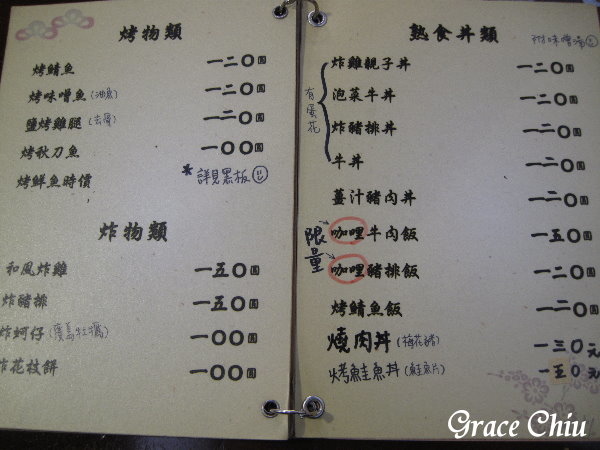 烤物類
烤鯖魚 一二〇圓
烤味噌魚(油魚) 一二〇圓
鹽烤雞腿(去骨) 一二〇圓
烤秋刀魚 一〇〇圓
烤鮮魚時價 *詳見黑板
炸物類
和風炸雞 一五〇圓
炸豬排 一五〇圓
炸蚵仔(廣島牡蠣) 一〇〇圓
炸花枝餅 一〇〇圓
熟食丼類 附味噌湯
有蛋花
炸雞親子丼 一二〇圓
泡菜牛丼 一二〇圓
炸豬排丼 一二〇圓
牛丼 一二〇圓
薑汁豬肉丼 一二〇圓
限量
咖哩牛肉飯 一五〇圓
咖哩豬排飯 一二〇圓
烤鯖魚飯 一二〇圓
燒肉丼(梅花豬) 一三〇元
烤鮭魚丼(鮭魚片) 一五〇元
Grace Chiu